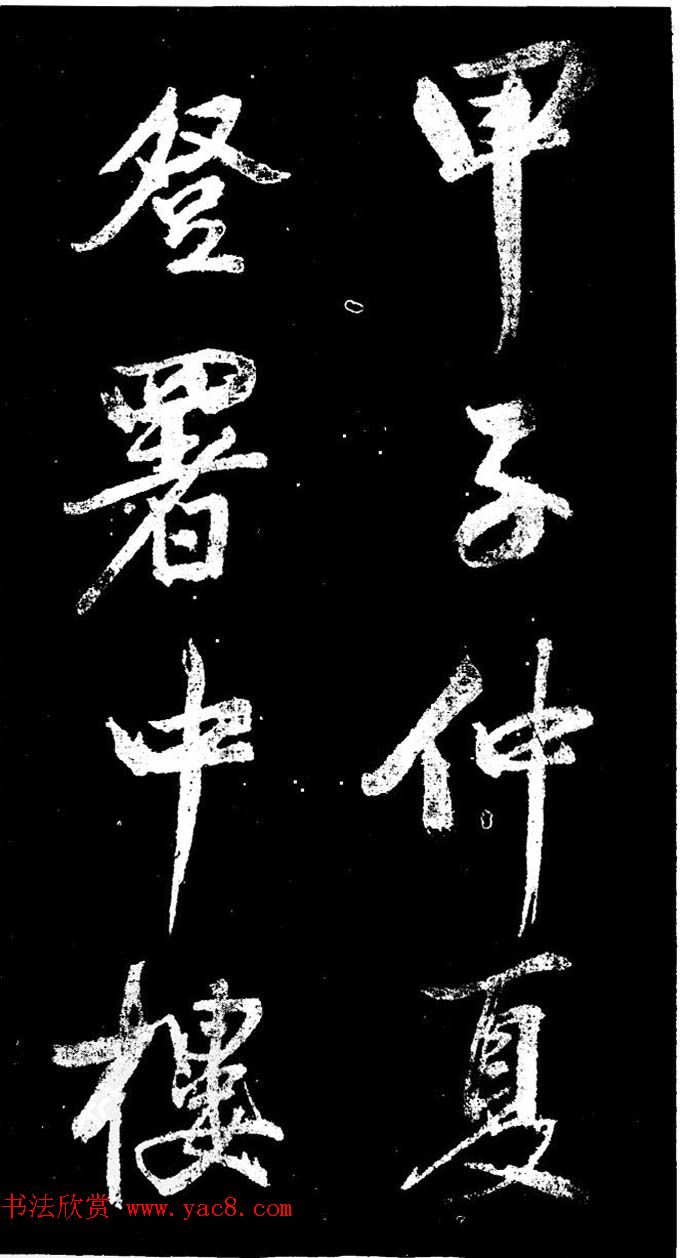 甲子仲夏
登署中樓
书法欣赏 www.yac8.com